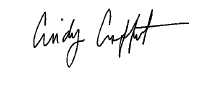 Cindy Croffut